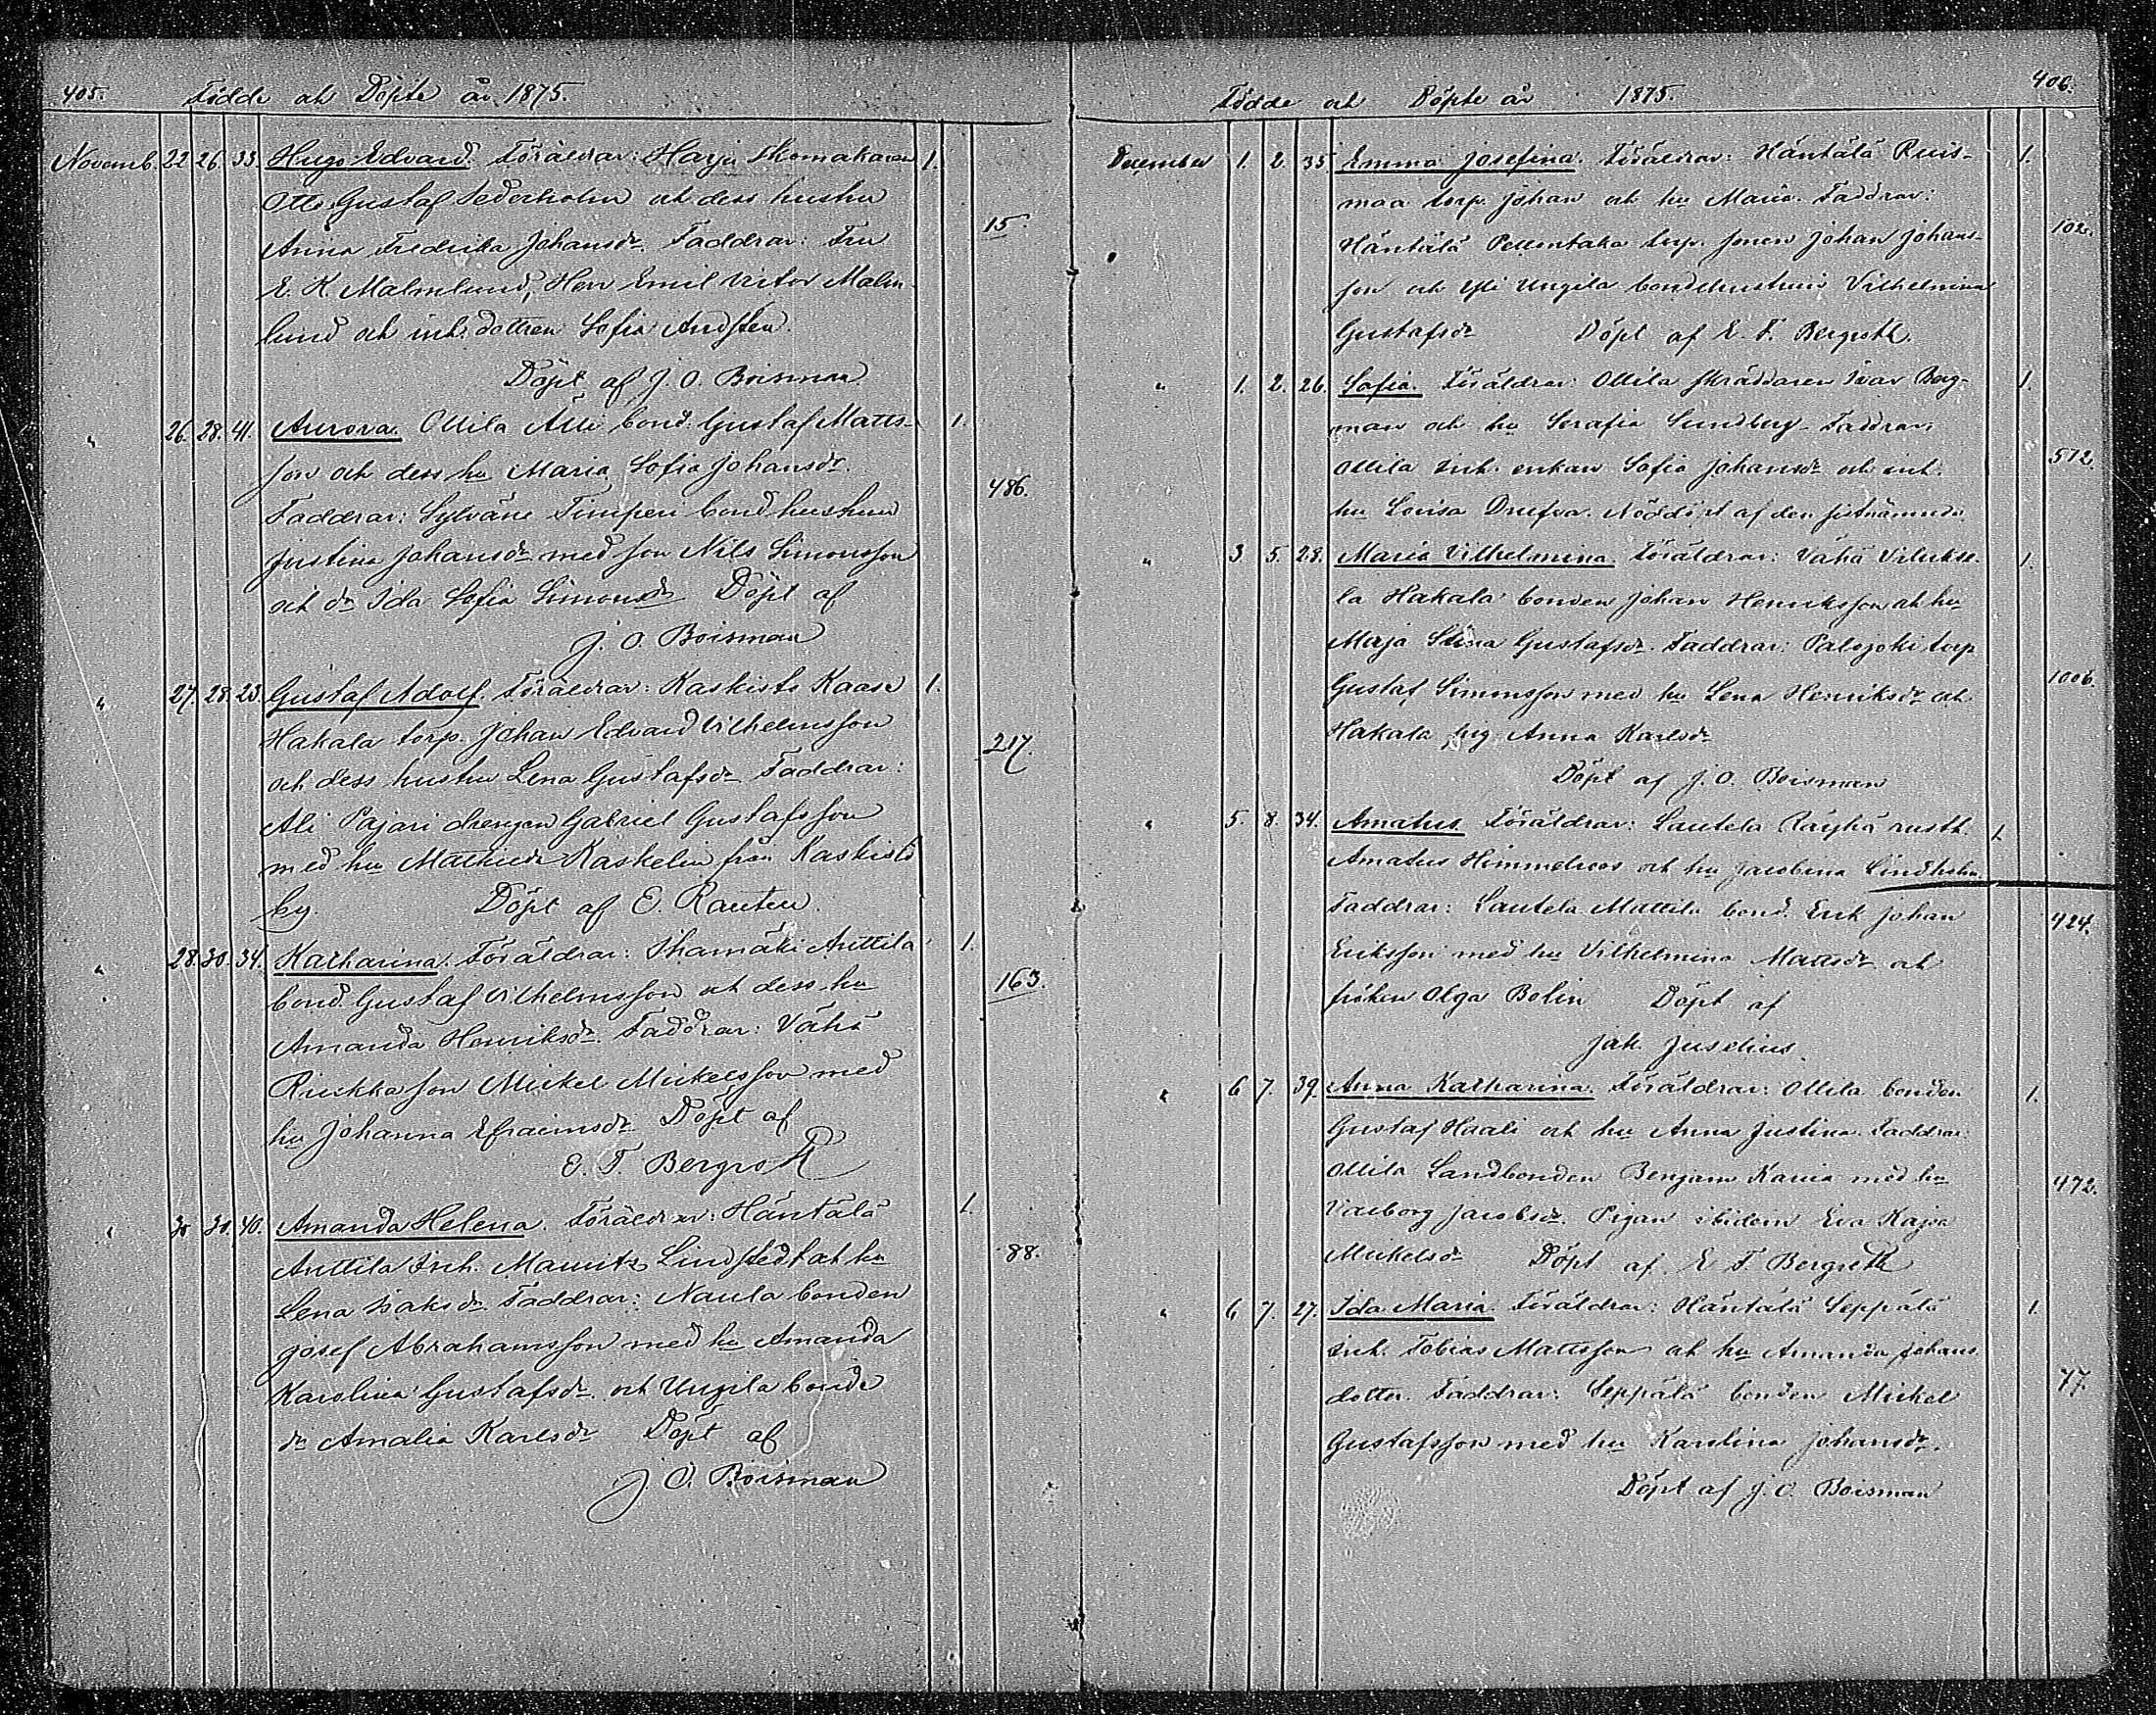 405. Födde och Döpte år 1875.
Novemb. 22 26. 33. Hugo Edvard. Föräldrar: Harju Skomakaren 1.
Otto Gustaf Sederholm och dess hustru
15.
Anna Fredrika Johansdr. Faddrar: Fru
E. K. Malmlund, Herr Emil Victor Malm-
lund och inh. dottren Sofia Andsten.
Döpt af J. O. Boisman.
" 26. 28. 41. Aurora. Ollila Alli bond. Gustaf Matts- 1.
son och dess hu Maria Sofia Johansdr.
486.
Faddrar: Sylväne Timperi bond hustrun
Justina Johansdr med son Nils Simonsson
och dr Ida Sofia Simonsdr Döpt af
J. O. Boisman
" 27. 28. 23. Gustaf Adolf. Föräldrar: Kaskisto Kaase 1.
Hakala torp. Johan Edvard Vilhelmsson
217.
och dess hustru Lena Gustafsdr Faddrar:
Ali Pajari drengen Gabriel Gustafsson
med hu Mathilda Kaskelin från Kaskisto
by. Döpt af E. Rauten.
" 28. 30. 34. Katharina. Föräldrar: Ihamäki Anttila 1.
bond. Gustaf Vilhelmsson och dess hu
163.
Amanda Henriksdr. Faddrar: Vähä
Ruskka son Mickel Mickelsson med
hu Johanna Efraimsdr Döpt af
E. F. Bergroth
" 30 30. 40. Amanda Helena. Föräldrar: Häntälä 1.
Anttila Inh. Mauritz Lindstedt och hu
88.
Lena Isaksdr Faddrar: Naula bonden
Josef Abrahamsson med hu Amanda
Karolina Gustafsdr. och Ungila bonde
dr Amalia Karlsdr Döpt af
J. O. Boisman
406.
Födde och Döpte år 1875.
December 1. 2. 35. Emma Josefina. Föräldrar: Häntälä Ruis- 1.
maa torp. Johan och hu Maria. Faddrar:
102.
Häntälä Pellontaka torp. sonen Johan Johans-
son och Yli Ungila bondehustrun Vilhelmina
Gustafsdr Döpt af E. F. Bergroth.
" 1. 2. 26. Sofia. Föräldrar: Ollila skräddaren Ivar Berg- 1.
man och hu Serafia Sundberg. Faddrar:
Ollila inh. enkan Sofia Johansdr och inh.
512.
hu Lovisa Drufva. Nöddöpt af den sistnämnda
" 3 5. 28. Maria Vilhelmina. Föräldrar: Vähä Viluksе- 1.
la Hakala bonden Johan Henriksson och hu
Maja Stina Gustafsdr. Faddrar: Palojoki torp
Gustaf Simonsson med hu Lena Henriksdr och
1006.
Hakala pig Anna Karlsdr
Döpt af J. O. Boisman
" 5. 8. 34. Amatus. Föräldrar: Lautela Räyhä rusth. 1.
Amatus Himmelroos och hu Jacobina Lindholm
Faddrar: Lautela Mattila bond. Erik Johan
424.
Eriksson med hu Vilhelmina Mattsdr och
fröken Olga Bolin Döpt af
Jak. Juselius.
" 6 7. 39. Anna Katharina. Föräldrar: Ollila bonden 1.
Gustaf Haali och hu Anna Justina. Faddrar:
Ollila Landbonden Benjam Karria med hu
472.
Valborg Jacobsdr. Pigan ibidem Eva Kajsa
Mickelsdr Döpt af E. F. Bergroth
" 6 7. 27. Ida Maria. Föräldrar: Häntälä Seppälä 1.
inh. Tobias Mattsson och hu Amanda Johans
dotter. Faddrar: Seppälä bonden Mickel
77.
Gustafsson med hu Karolina Johansdr.
Döpt af J. O. Boisman